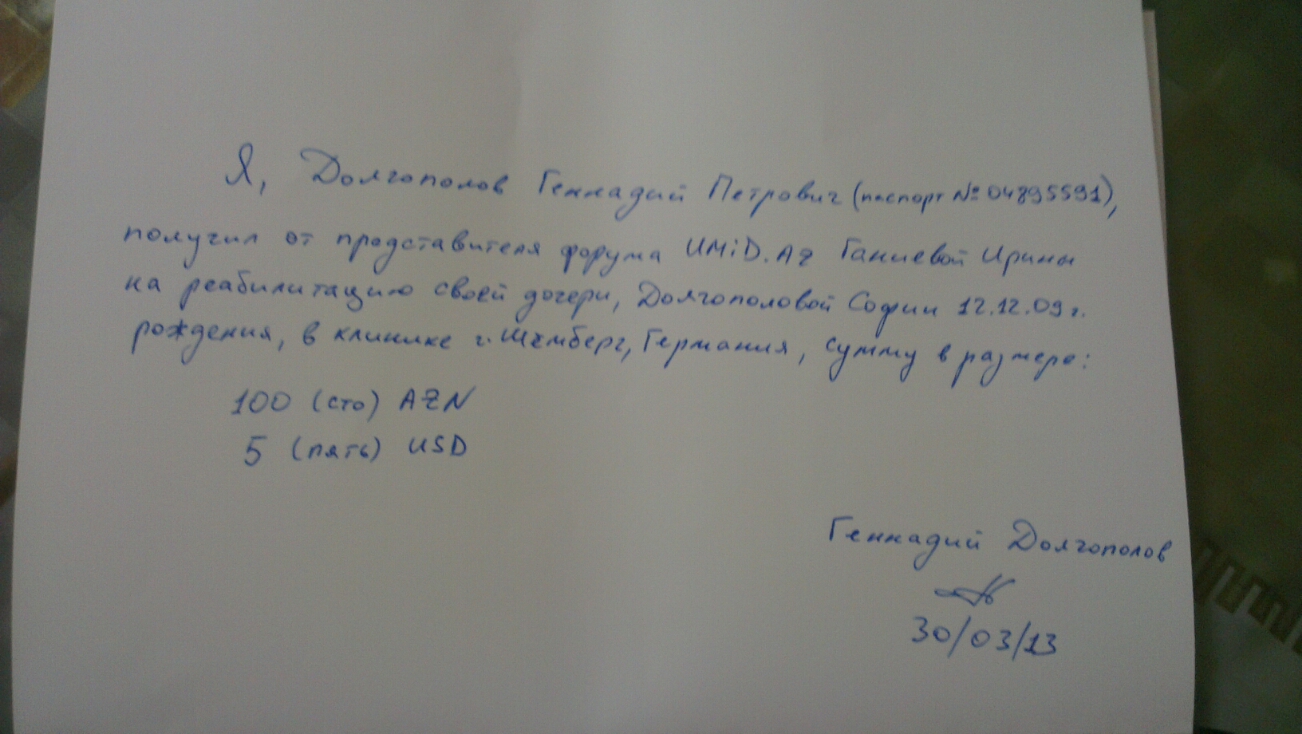 Я, Долгополов Геннадий Петрович (паспорт № 04895591),
получил от представителя форума UMiD.AZ Ганиевой Ирины
на реабилитацию своей дочери, Долгополовой Софии 12.12.09 г.
рождения, в клинике г. Шёмберг, Германия, сумму в размере:
100 (сто) AZN
5 (пять) USD
Геннадий Долгополов
30/03/13